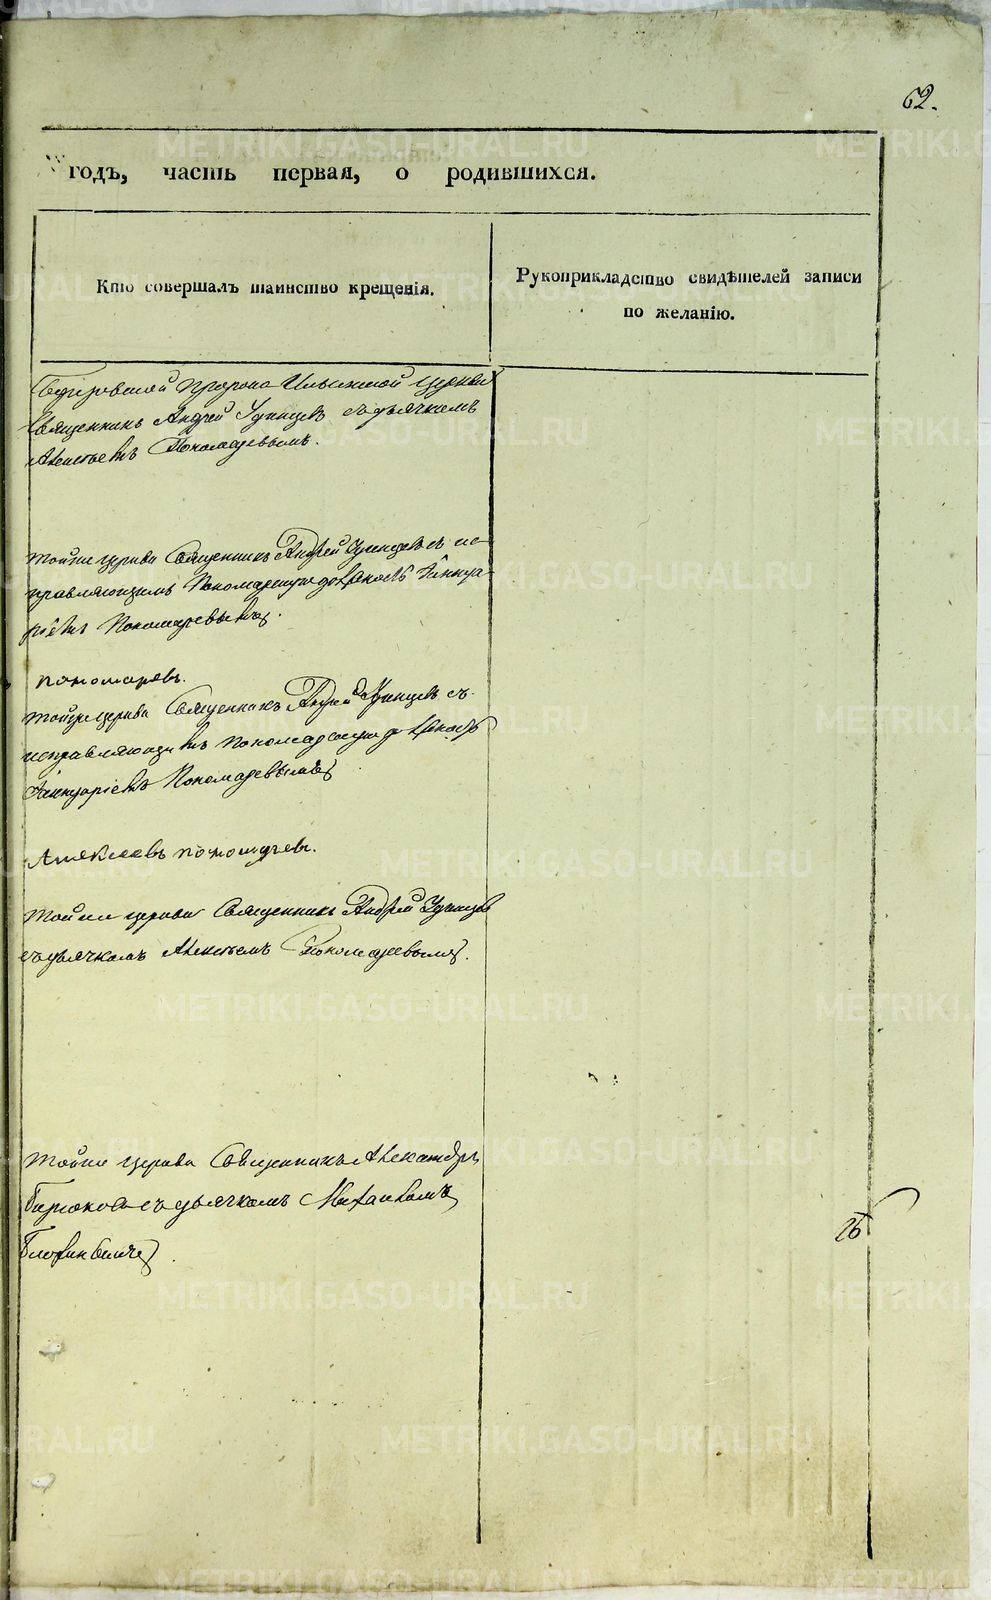 62.
годъ, часть первая, о родившихся.
Кто совершалъ таинство крещенія.
Рукоприкладство свидѣтелей записи
по желанію.
Пророко Ильинской церкви
Священникъ Андрей Удинцевъ съ дьячкомъ
Пономаревымъ.
Тойже церкви Священникъ Андрей Удинцевъ съ ис-
правляющимъ Пономарскую должность Іаннуа-
ріемъ Пономаревымъ.
Пономаревъ.
Тойже церкви Священникъ Андрей Удинцевъ съ
исправляющимъ пономарскую должность
Іаннуаріемъ Пономаревымъ
Пономаревъ.
Тойже церкви Священникъ Андрей Удинцевъ
съ дьячкомъ Пономаревымъ.
Тойже церкви Священникъ Александръ
Бирюковъ съ дьячкомъ Михаиломъ
26
METRIKI.GASO-URAL.RU